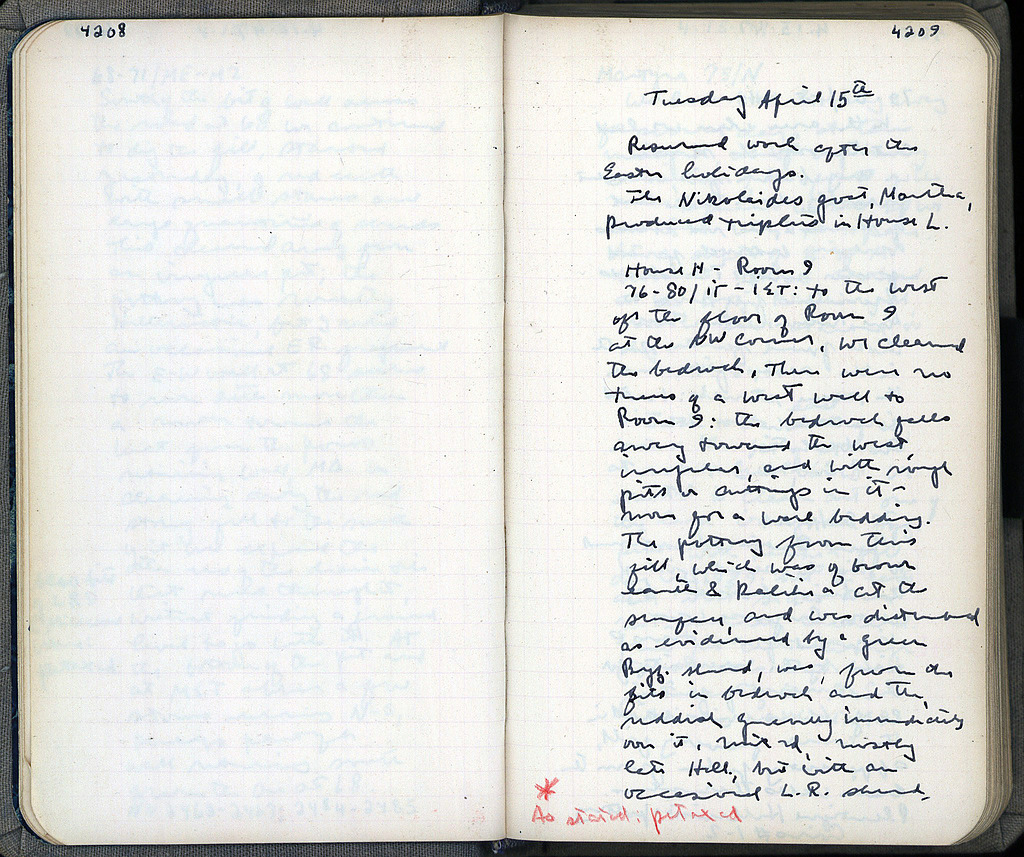 4208
4209
Tuesday April 15th
Resumed work after the
Easter holidays.
The Nikolaides goat, Martha,
produced triplets in House L.
House H - Room 9
76-80/ΙΤ - ΙΕΤ: to the west
of the floor of Room 9
at the NW corner, we cleaned
the bedrock. There were no
traces of a west wall to
Room 9: the bedrock falls
away toward the west
irregular, and with rough
pits or cuttings in it -
none for a wall bedding.
The pottery from this
fill, which was of brown
earth & kalitsa at the
surface and was disturbed
as evidenced by a green
Byz. sherd, was, from the
pits in bedrock and the
reddish gravelly immediately
over it, mixed, mostly
late Hell, but with an
occasional L.R. sherd.
*
As stated.